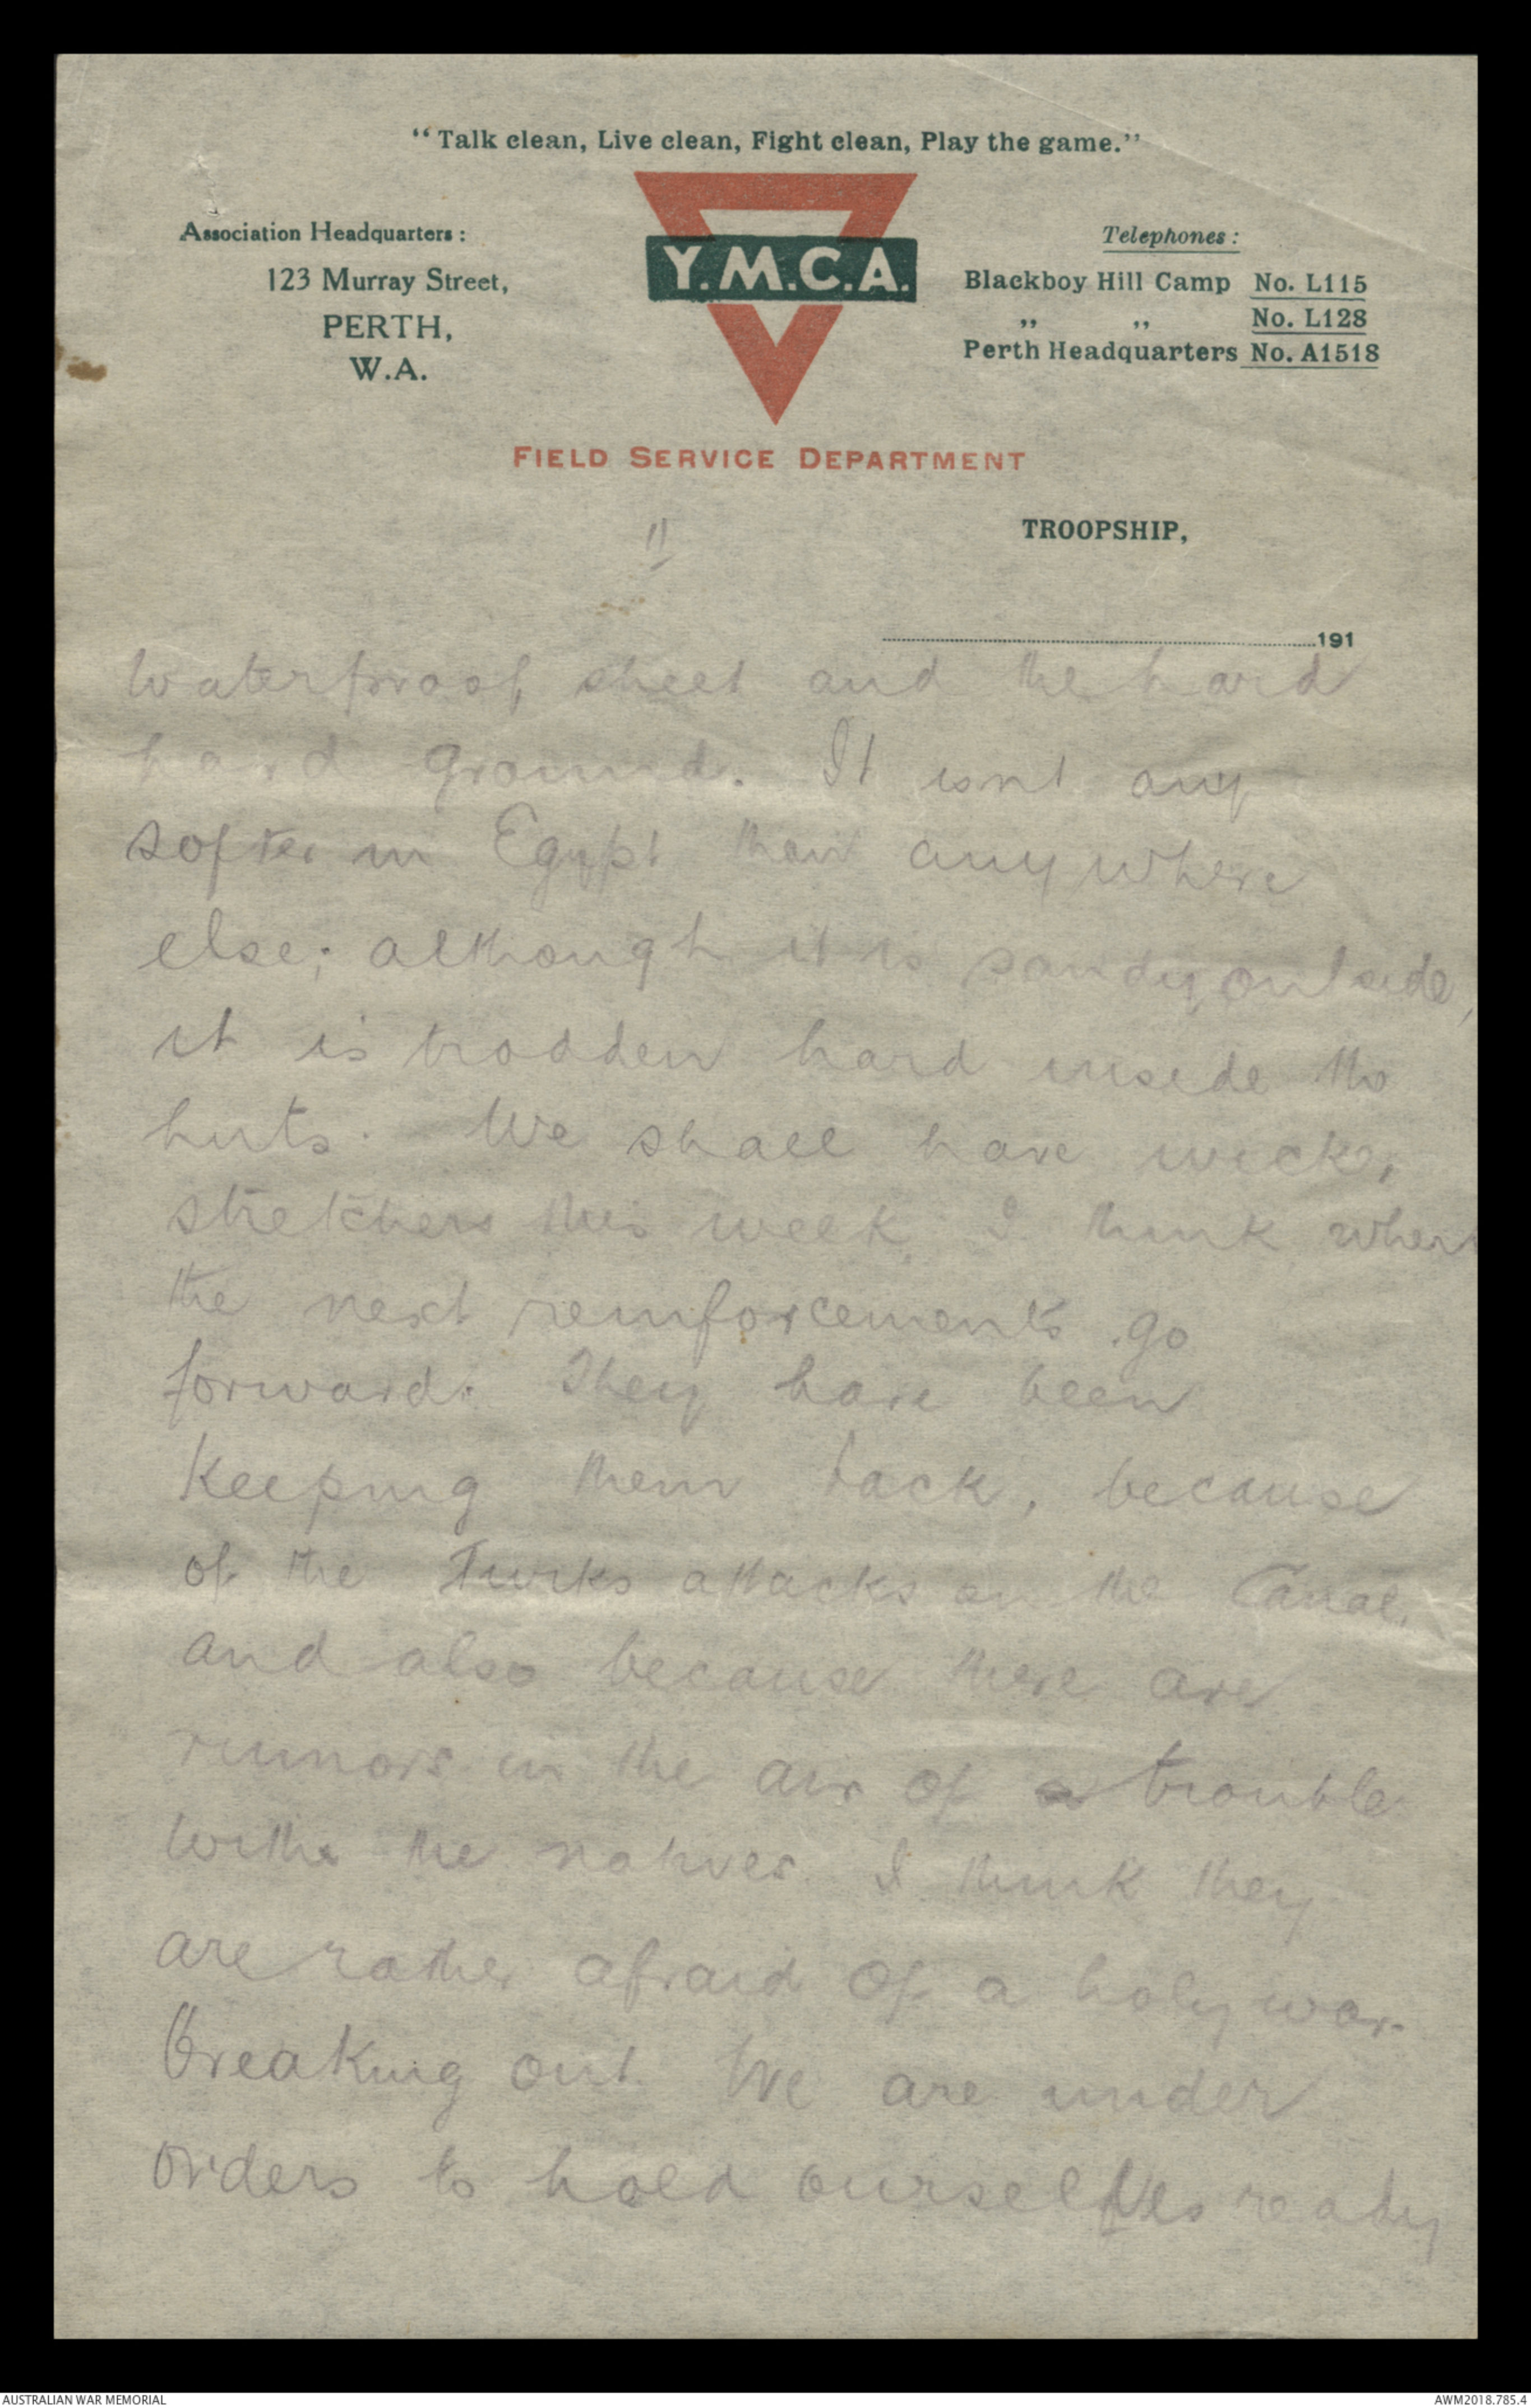 "Talk clean, Live clean, Fight clean, Play the game."
Association Headquarters:
123 Murray Street,
PERTH,
W.A.
Y.M.C.A.
Telephones:
Blackboy Hill Camp No. L115
" " No. L128
Perth Headquarters No. A1518
FIELD SERVICE DEPARTMENT
11
TROOPSHIP,
191
waterproof, sheet and the hard
hard ground. It isnt any
softer in Egypt than anywhere
else; although it is sandy outside,
it is trodden hard inside the
huts. We shall have
stretchers this week, I think when
the next reinforcements go
forward. They have been
keeping them back, because
of the Turks attacks on the Canal,
and also because there are
rumors in the air of a trouble
with the natives. I think they
are rather afraid of a holy war
breaking out. We are under
orders to hold ourselves ready
AUSTRALIAN WAR MEMORIAL
AWM2018.785.4